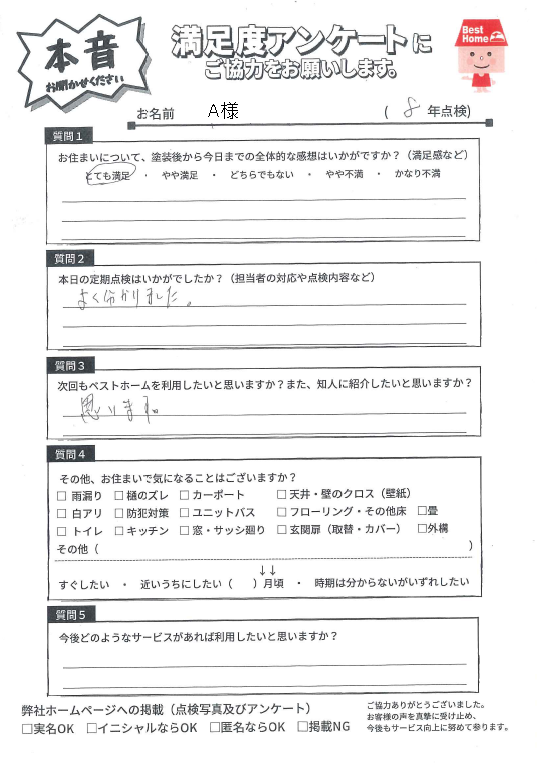 本音
お聞かせください
満足度アンケートに
ご協力をお願いします。
Best Home
お名前 A様 ( 8 年点検)
質問1
お住まいについて、塗装後から今日までの全体的な感想はいかがですか？（満足感など）
とても満足 ・ やや満足 ・ どちらでもない ・ やや不満 ・ かなり不満
質問2
本日の定期点検はいかがでしたか？（担当者の対応や点検内容など）
よく分かりました。
質問3
次回もベストホームを利用したいと思いますか？また、知人に紹介したいと思いますか？
思います。
質問4
その他、お住まいで気になることはございますか？
□ 雨漏り □ 樋のズレ □ カーポート □ 天井・壁のクロス（壁紙）
□ 白アリ □ 防犯対策 □ ユニットバス □ フローリング・その他床 □畳
□ トイレ □ キッチン □ 窓・サッシ廻り □ 玄関扉（取替・カバー） □外構
その他（ ）
↓↓
すぐしたい ・ 近いうちにしたい（ ）月頃 ・ 時期は分からないがいずれしたい
質問5
今後どのようなサービスがあれば利用したいと思いますか？
弊社ホームページへの掲載（点検写真及びアンケート）
□実名OK □イニシャルならOK □匿名ならOK □掲載NG
ご協力ありがとうございました。
お客様の声を真摯に受け止め、
今後もサービス向上に努めて参ります。